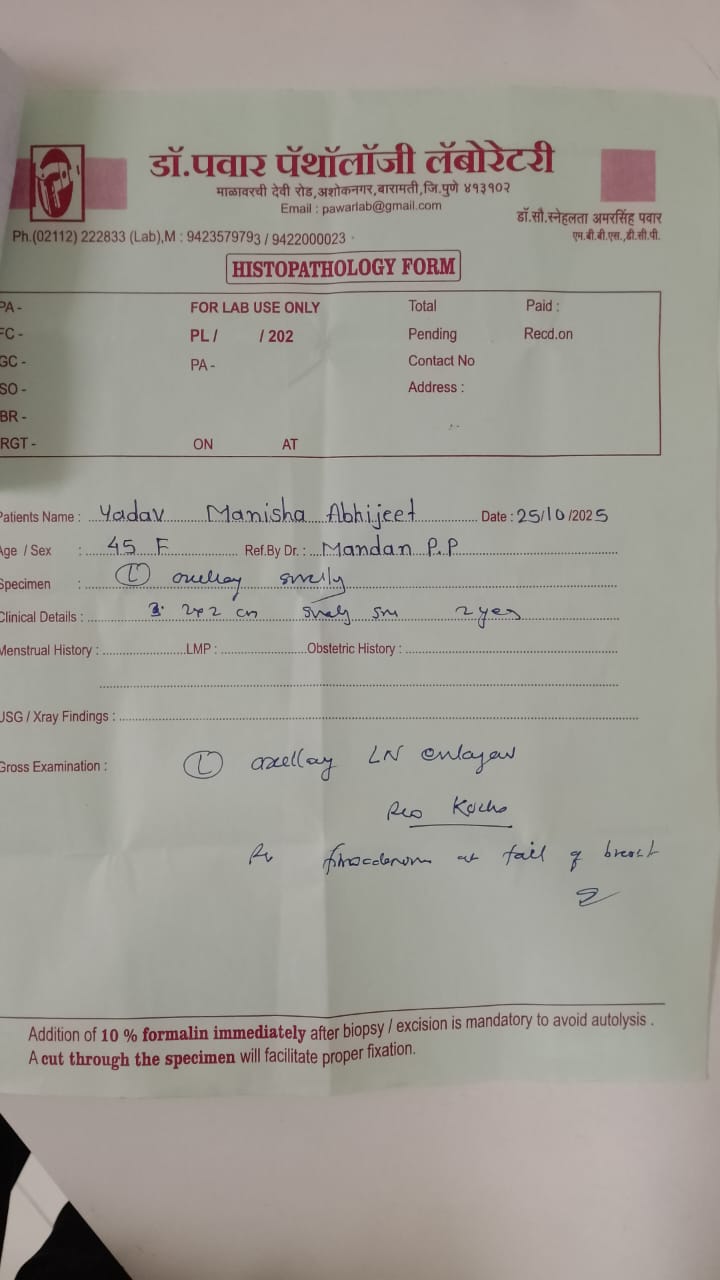 डॉ.पवार पॅथॉलॉजी लॅबोरेटरी
माळावरची देवी रोड,अशोकनगर,बारामती,जि.पुणे ४१३१०२
Email : pawarlab@gmail.com
डॉ.सौ.स्नेहलता अमरसिंह पवार
एम.बी.बी.एस.,डी.सी.पी.
Ph.(02112) 222833 (Lab),M : 9423579793 / 9422000023
HISTOPATHOLOGY FORM
PA - FOR LAB USE ONLY Total Paid :
FC - PL / / 202 Pending Recd.on
GC - PA - Contact No
SO - Address :
BR -
RGT - ON AT
Patients Name : Yadav Manisha Abhijeet Date : 25/10/2025
Age / Sex : 45 F Ref.By Dr. : Mandan P.P
Specimen : (L)
Clinical Details : 2x2 cm
Menstrual History : LMP : Obstetric History :
USG / Xray Findings :
Gross Examination : (L) axellay LN
Kochs
at tail of breast
Addition of 10 % formalin immediately after biopsy / excision is mandatory to avoid autolysis .
A cut through the specimen will facilitate proper fixation.